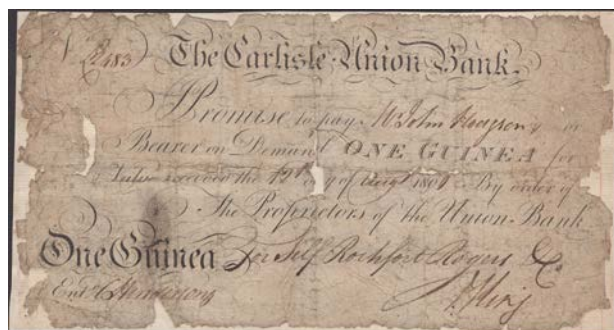 The Carlisle Union Bank.
Promise to pay Mr John Hodgson or
Bearer on Demand ONE GUINEA for
Value received the 12th day of Augt 1801 By order of
The Proprietors of the Union-Bank
One Guinea For Self Rochfort Rogers & Co
Entd